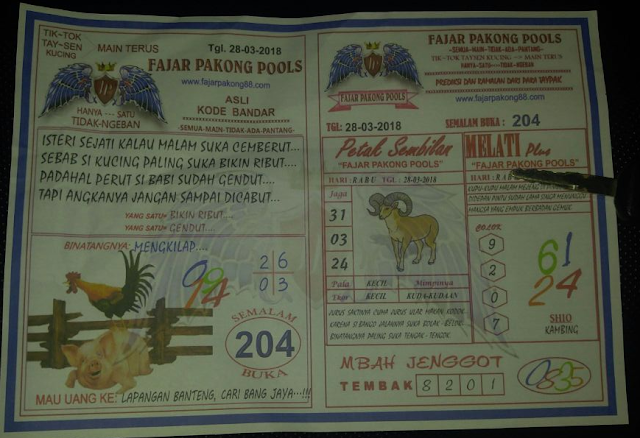 TIK-TOK
TAY-SEN
KUCING
MAIN TERUS
Tgl. 28-03-2018
FAJAR PAKONG POOLS
www.fajarpakong88.com
ASLI
KODE BANDAR
HANYA---SATU
TIDAK-NGEBAN
-SEMUA-MAIN-TIDAK-ADA-PANTANG-
ISTERI SEJATI KALAU MALAM SUKA CEMBERUT....
SEBAB SI KUCING PALING SUKA BIKIN RIBUT....
PADAHAL PERUT SI BABI SUDAH GENDUT....
TAPI ANGKANYA JANGAN SAMPAI DICABUT....
YANG SATU!! BIKIN RIBUT....
YANG SATU!! GENDUT....
BINATANGNYA: MENGKILAP....
2 6
0 3
SEMALAM
204
BUKA
MAU UANG KE: LAPANGAN BANTENG, CARI BANG JAYA...!!!
FAJAR PAKONG POOLS
-SEMUA-MAIN-TIDAK-ADA-PANTANG-
TIK-TOK TAYSEN KUCING --- MAIN TERUS
HANYA-SATU---TIDAK-NGEBAN
PREDIKSI DAN RAMALAN DARI PARA
www.fajarpakong88.com
FAJAR PAKONG POOLS
TGL: 28-03-2018
SEMALAM BUKA : 204
Petak Sembilan
"FAJAR PAKONG POOLS"
HARI : RABU TGL : 28-03-2018
Jaga
31
03
24
Pala KECIL Mimpinya
Ekor KECIL KUDA-KEDAAN
JURUS SAKTINYA CUMA JURUS ULAR MAKAN KODOK
KARENA SI BANGO JALANNYA SUKA BOLAK - BELOK
BINATANGNYA PALING SUKA TENGAK - TENGOK
MELATI Plus
"FAJAR PAKONG POOLS"
HARI :
KUPU-KUPU MALAM
DIDEPAN PINTU SUDAH LAMA
MANGSA YANG EMPUK BERBADAN GEMUK
COLOK
9
2
0
7
61
24
SHIO
KAMBING
MBAH JENGGOT
TEMBAK 8 2 0 1
0835